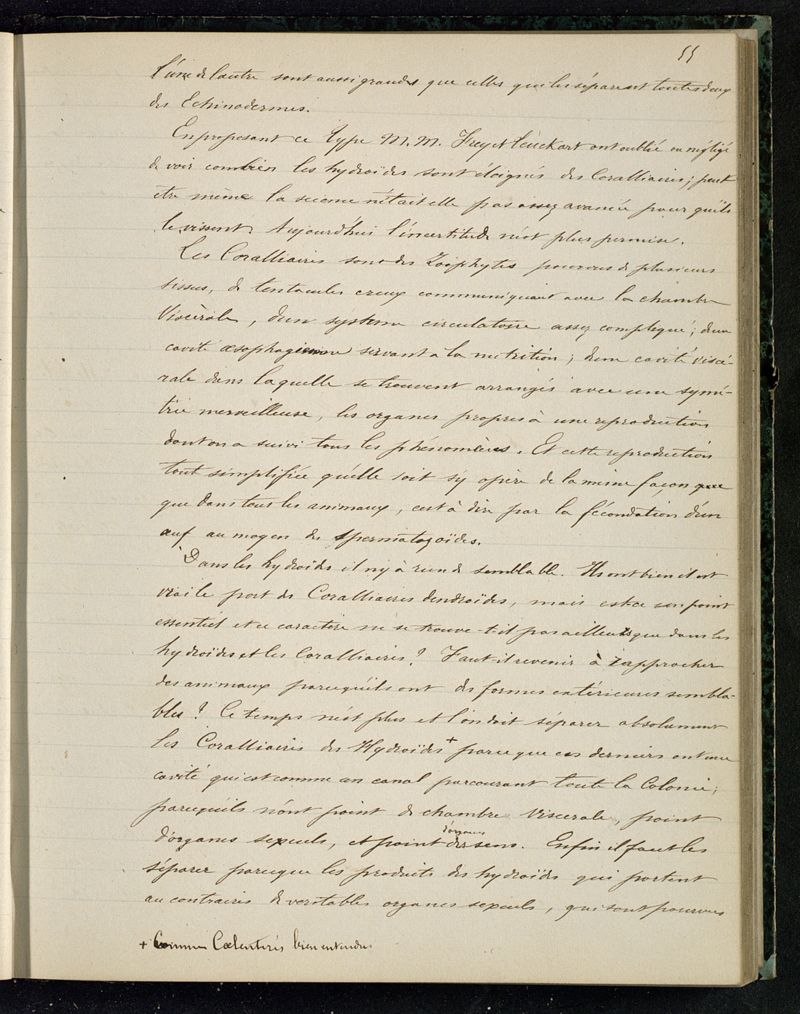 55
l'une de l'autre sont aussi grandes que celles qui les séparent toutes deux
des Echinodermes.
En proposant ce type M. M. Frey et Leuckart ont oublié ou négligé
de voir combien les hydroïdes sont éloignés des Coralliaires; peut
etre même la science n'était elle pas assez avancée pour qu'ils
le vissent. Aujourd'hui l'incertitude n'est plus permise.
Les Coralliaires sont des Zoophytes pourvus de plusieurs
tissus, de tentacules creux communiquant avec la chambre
Viscérale, d'un système circulatoire assez compliqué; d'une
cavité œsophagienne servant a la nutrition; d'une cavité viscé-
rale dans laquelle se trouvent arrangés avec une symé-
trie merveilleuse, les organes propres à une reproduction
dont on a suivi tous les phénomènes. Et cette reproduction
tout simplifiée qu'elle soit s'y opère de la même façon que
que dans tous les animaux, c'est à dire par la fécondation d'un
œuf au moyen de spermatozoïdes.
Dans les hydroïdes il n'y a rien de semblable. Ils ont bien il est
vrai le port des Coralliaires dendroïdes, mais est-ce un point
essentiel et ce caractère ne se trouve-t-il pas ailleurs que dans les
hydroïdes et les Coralliaires? Faut il revenir à rapprocher
des animaux parcequ'ils ont des formes extérieures sembla-
bles? Ce temps n'est plus et l'on doit séparer absolument
les Coralliaires des Hydroïdes + parceque ces derniers ont une
cavité qui est comme un canal parcourant toute la Colonie;
parcequ'ils n'ont point de chambre Viscerale, point
d'organes sexuels, et point d'organes des sens. Enfin il faut les
séparer parceque les produits des hydroïdes qui portent
au contraire de veritables organes sexuels, qui sont pourvus
+ Comme Cœlenterés bien entendu